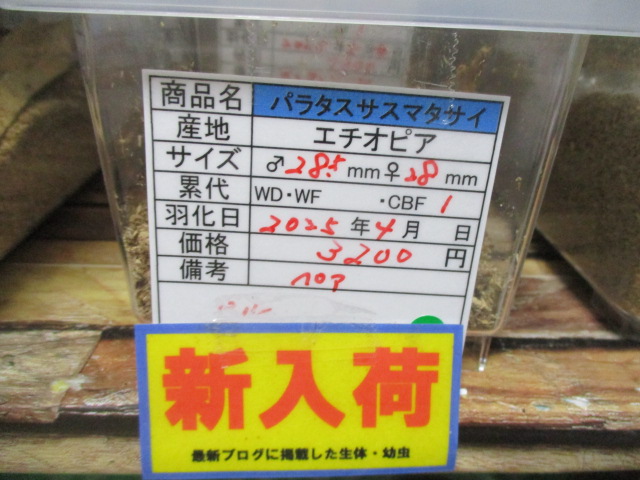 商品名 パラタスサスマタサイ
産地 エチオピア
サイズ ♂28.5mm♀28mm
累代 WD・WF ・CBF 1
羽化日 2025年4月 日
価格 3200円
備考 ペア
新入荷
最新ブログに掲載した生体・幼虫